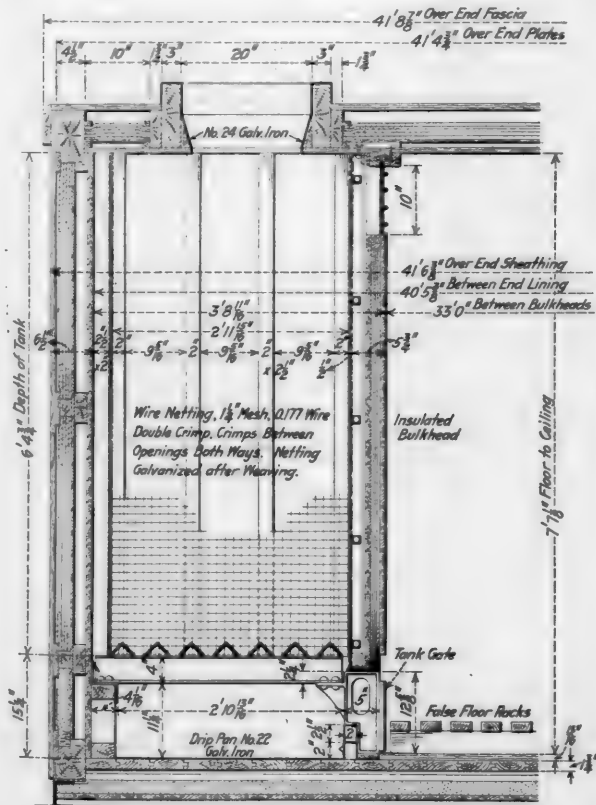 41'8 7/8" Over End Fascia
41'4 3/4" Over End Plates
10"
20"
3"
1 3/4"
No. 24 Galv. Iron
10"
Over End Sheathing
Between End Lining
33'0" Between Bulkheads
3'8 11/16"
2'11 15/16"
2" 9 5/16" 2" 9 5/16" 2" 9 5/16" 2"
x 2 1/2"
5 3/4"
6'4 3/4" Depth of Tank
Wire Netting, 1 1/4" Mesh, 0.177 Wire
Double Crimp, Crimps Between
Openings Both Ways. Netting
Galvanized after Weaving.
Insulated
Bulkhead
7'7 1/2" Floor to Ceiling
4"
Tank Gate
2'10 13/16"
5"
False Floor Racks
Drip Pan No. 22
Galv. Iron
2"